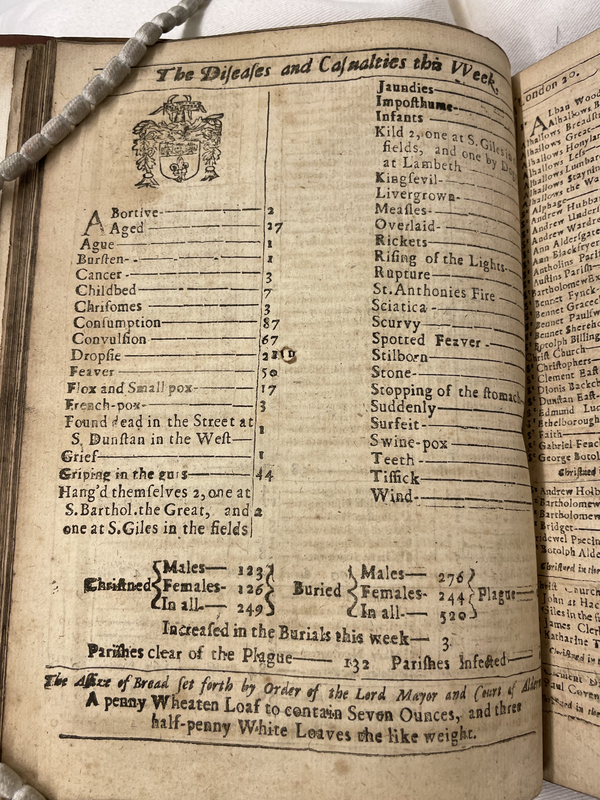 The Diſeaſes and Caſualties this VVeek.
A Bortive 2
Aged 27
Ague 1
Burſten 1
Cancer 3
Childbed 7
Chriſomes 3
Conſumption 87
Convulſion 67
Dropſie
Feaver 50
Flox and Small pox 17
French-pox 3
Found dead in the Street at
S. Dunſtan in the Weſt 1
Grief 1
Griping in the guts 44
Hang'd themſelves 2, one at
S. Barthol. the Great, and 2
one at S. Giles in the fields
Jaundies
Impoſthume
Infants
Kild 2, one at S. Giles in
fields, and one by
at Lambeth
Kingſevil
Livergrown
Meaſles
Overlaid
Rickets
Riſing of the Lights
Rupture
St. Anthonies Fire
Sciatica
Scurvy
Spotted Feaver
Stilborn
Stone
Stopping of the ſtomach
Suddenly
Surfeit
Swine-pox
Teeth
Tiſſick
Wind
Chriſtned { Males— 123 Females- 126 In all— 249 } Buried { Males— 276 Females- 244 In all— 520 } Plague
Increaſed in the Burials this week— 3
Pariſhes clear of the Plague— 132 Pariſhes Infected
The Aſſize of Bread ſet forth by Order of the Lord Mayor and Court of
A penny Wheaten Loaf to contain Seven Ounces, and three
half-penny White Loaves the like weight.
ondon 20.
Alban Wood
Alhallows
lhallows Breadſt
lhallows Great
lhallows Honylan
lhallows Leſſ
lhallows Lumbar
lhallows Staynin
lhallows the Wa
Alphage
Andrew Hubba
Andrew Underſ
Andrew Wardro
Ann Alderſgate
Ann Blackfryer
Antholins Pariſh
Auſtins Pariſh
BartholomewEx
Bennet Fynck
Bennet Gracec
Bennet Paulſw
Bennet Shereho
Botolph Billing
Chriſt Church
Chriſtophers
Clement Eaſt
Dionis Backch
Dunſtan Eaſt
Edmund Luc
Ethelborough
Faith
Gabriel Fench
George Botol
Chriſtned i
Andrew Holb
Bartholomew
Bartholomew
Bridget
ridewel Precin
Botolph Alde
Chriſtned in the
riſt Church
John at Hac
Giles in the fi
James Clerk
Katharine T
Chriſtned in
Clement
Paul Coven